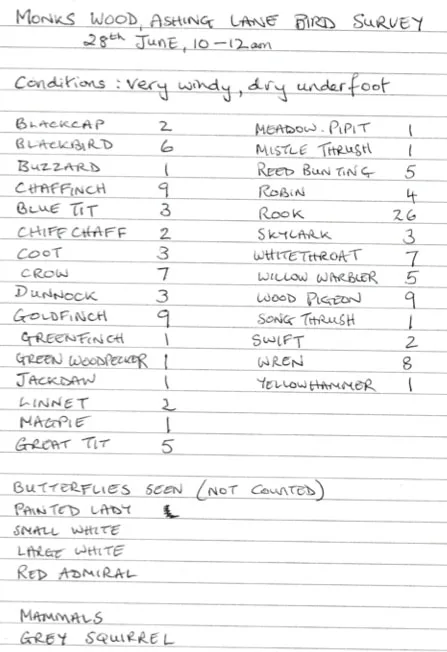 MONKS WOOD, ASHING LANE BIRD SURVEY
28th JUNE, 10-12am
Conditions : very windy, dry underfoot
BLACKCAP 2
BLACKBIRD 6
BUZZARD 1
CHAFFINCH 9
BLUE TIT 3
CHIFF CHAFF 2
COOT 3
CROW 7
DUNNOCK 3
GOLDFINCH 9
GREENFINCH 1
GREEN WOODPECKER 1
JACKDAW 1
LINNET 2
MAGPIE 1
GREAT TIT 5
MEADOW.PIPIT 1
MISTLE THRUSH 1
REED BUNTING 5
ROBIN 4
ROOK 26
SKYLARK 3
WHITETHROAT 7
WILLOW WARBLER 5
WOOD PIGEON 9
SONG THRUSH 1
SWIFT 2
WREN 8
YELLOWHAMMER 1
BUTTERFLIES SEEN (NOT COUNTED)
PAINTED LADY
SMALL WHITE
LARGE WHITE
RED ADMIRAL
MAMMALS
GREY SQUIRREL